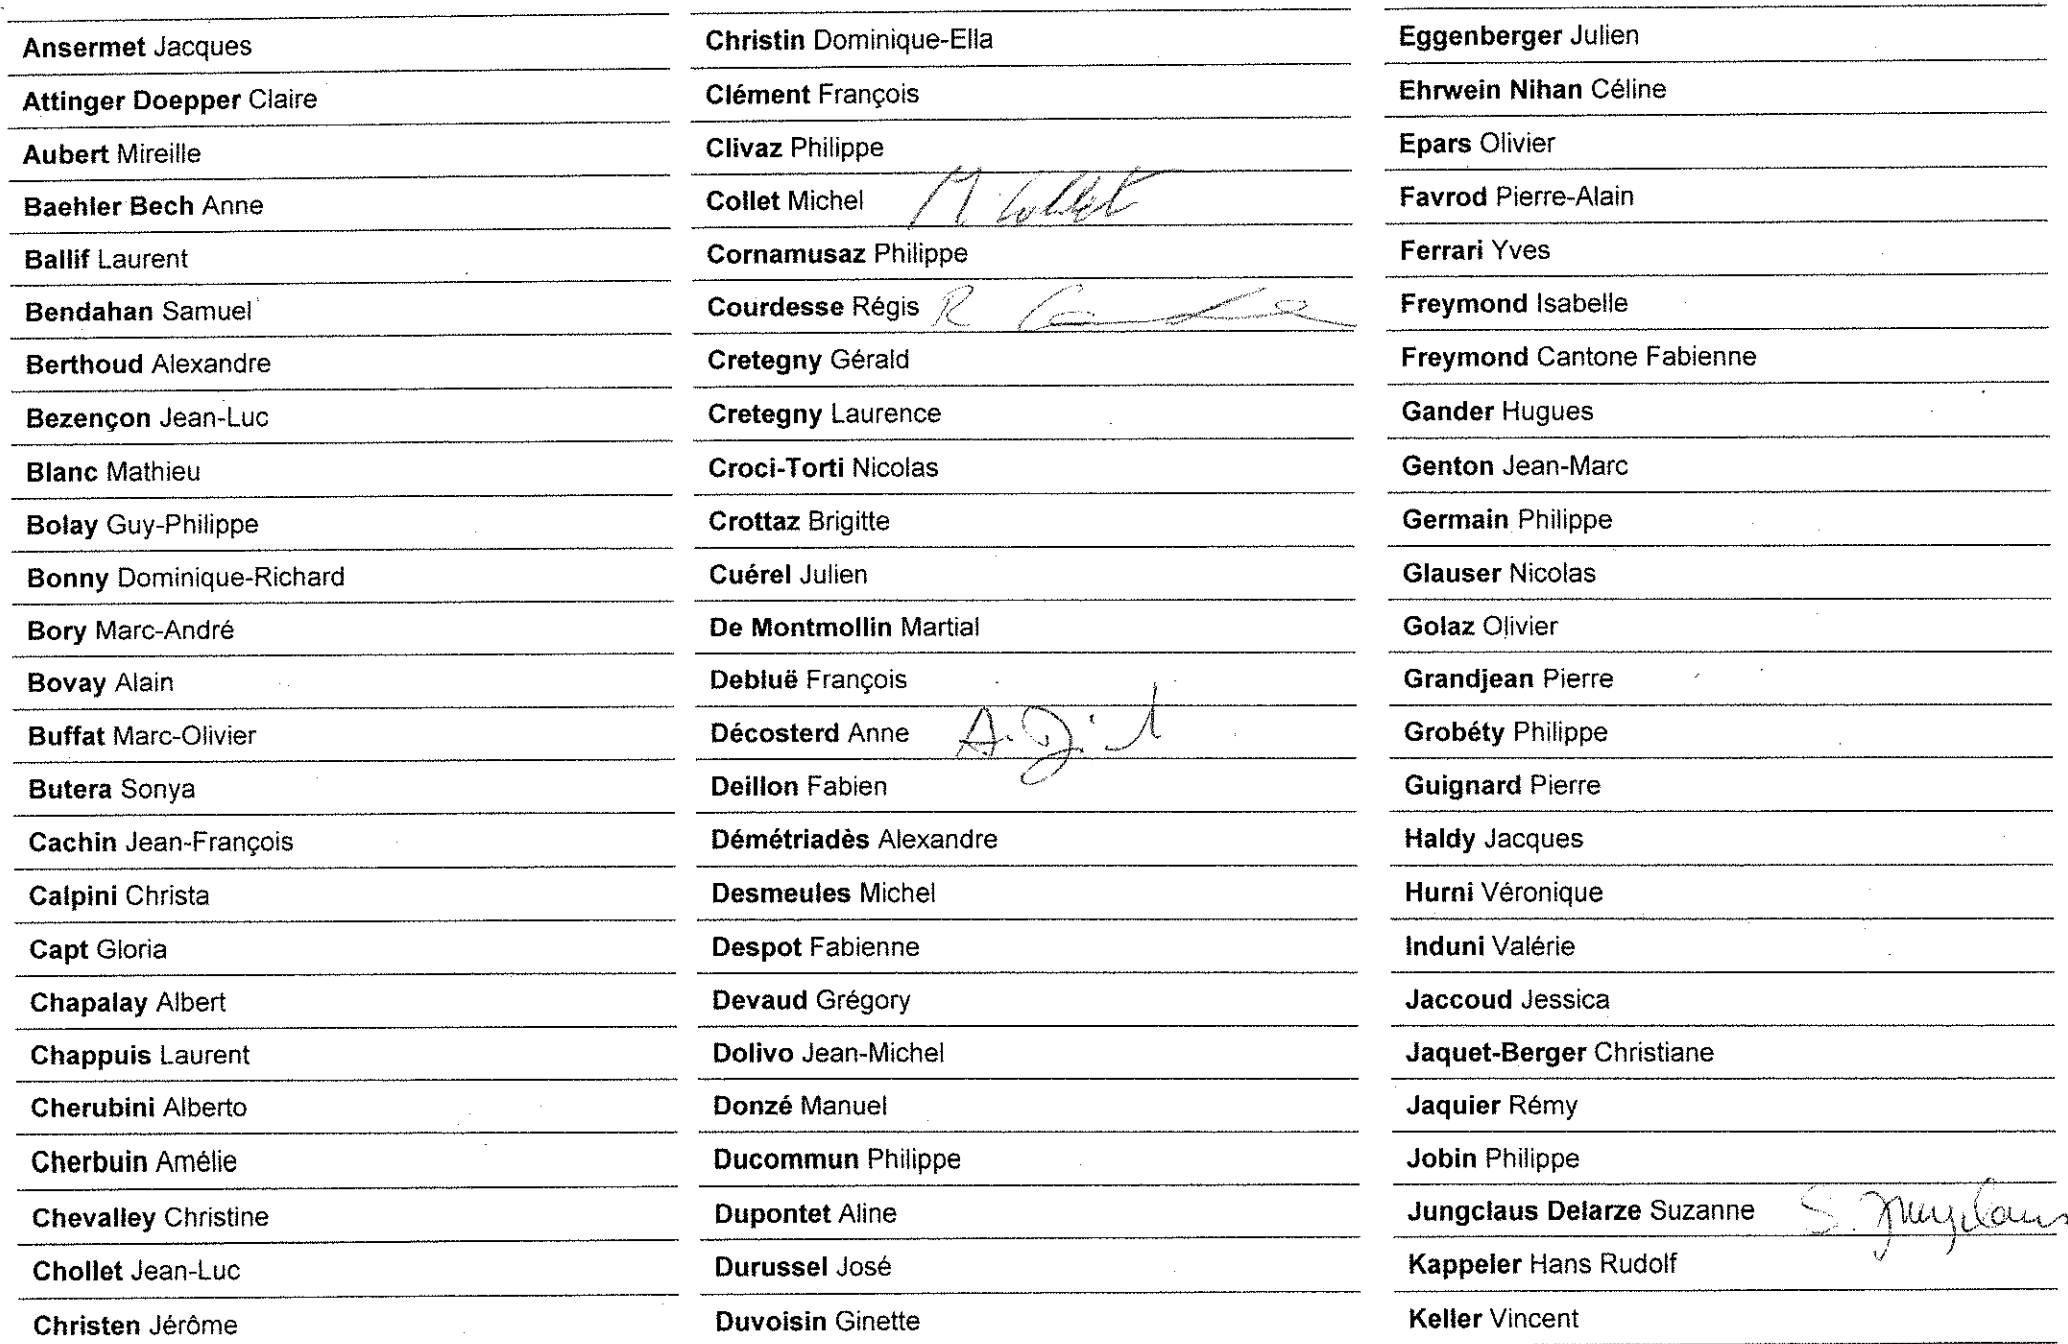 Ansermet Jacques
Attinger Doepper Claire
Aubert Mireille
Baehler Bech Anne
Ballif Laurent
Bendahan Samuel
Berthoud Alexandre
Bezençon Jean-Luc
Blanc Mathieu
Bolay Guy-Philippe
Bonny Dominique-Richard
Bory Marc-André
Bovay Alain
Buffat Marc-Olivier
Butera Sonya
Cachin Jean-François
Calpini Christa
Capt Gloria
Chapalay Albert
Chappuis Laurent
Cherubini Alberto
Cherbuin Amélie
Chevalley Christine
Chollet Jean-Luc
Christen Jérôme
Christin Dominique-Ella
Clément François
Clivaz Philippe
Collet Michel M. Collet
Cornamusaz Philippe
Courdesse Régis R
Cretegny Gérald
Cretegny Laurence
Croci-Torti Nicolas
Crottaz Brigitte
Cuérel Julien
De Montmollin Martial
Debluë François
Décosterd Anne A.
Deillon Fabien
Démétriadès Alexandre
Desmeules Michel
Despot Fabienne
Devaud Grégory
Dolivo Jean-Michel
Donzé Manuel
Ducommun Philippe
Dupontet Aline
Durussel José
Duvoisin Ginette
Eggenberger Julien
Ehrwein Nihan Céline
Epars Olivier
Favrod Pierre-Alain
Ferrari Yves
Freymond Isabelle
Freymond Cantone Fabienne
Gander Hugues
Genton Jean-Marc
Germain Philippe
Glauser Nicolas
Golaz Olivier
Grandjean Pierre
Grobéty Philippe
Guignard Pierre
Haldy Jacques
Hurni Véronique
Induni Valérie
Jaccoud Jessica
Jaquet-Berger Christiane
Jaquier Rémy
Jobin Philippe
Jungclaus Delarze Suzanne S. Jungclaus
Kappeler Hans Rudolf
Keller Vincent